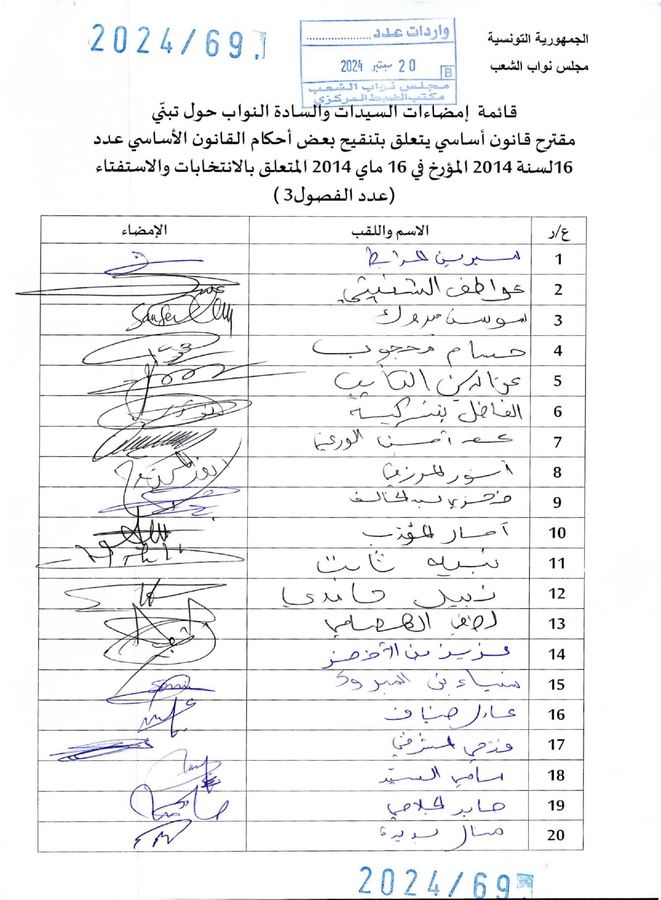 2024/69
الجمهورية التونسية
مجلس نواب الشعب
واردات عدد
20 سبتمبر 2024
B
مجلس نواب الشعب
مكتب الضبط المركزي
قائمة إمضاءات السيدات والسادة النواب حول تبنّي
مقترح قانون أساسي يتعلق بتنقيح بعض أحكام القانون الأساسي عدد
16لسنة 2014 المؤرخ في 16 ماي 2014 المتعلق بالانتخابات والاستفتاء
(عدد الفصول3 )
ع/ر الاسم واللقب الإمضاء
1 سيرين المرابط
2 عواطف الشنيتي
3 سوسن مبروك
4 حسام محجوب
5 عز الدين التايب
6 الفاضل بن تركية
7 محمد أمين الورغي
8 أنور المرزوقي
9 عبد الخالق
10
11 نبيه ثابت
12 نبيل حامدي
13 الهمامي
14 عزيز بن الأخضر
15 بن المبروك
16 عادل ضياف
17 فتحي المشرقي
18 سامي السيد
19 صابر الجلاصي
20 منال بديدة
2024/69